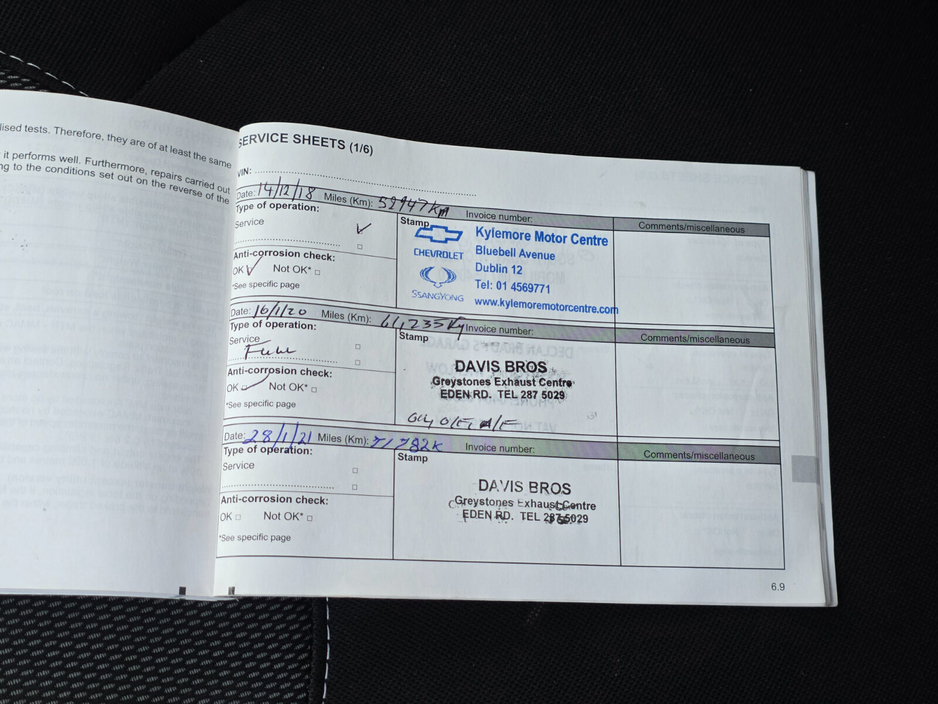 lised tests. Therefore, they are of at least the same
it performs well. Furthermore, repairs carried out
ng to the conditions set out on the reverse of the
SERVICE SHEETS (1/6)
VIN:
Date: 14/12/18 Miles (Km): 52947km Invoice number: Comments/miscellaneous
Type of operation:
Service
Anti-corrosion check:
OK Not OK*
*See specific page
Stamp
CHEVROLET
SSANGYONG
Kylemore Motor Centre
Bluebell Avenue
Dublin 12
Tel: 01 4569771
www.kylemoremotorcentre.com
Date: 16/1/20 Miles (Km): 61,235 Invoice number: Comments/miscellaneous
Type of operation:
Service
Full
Anti-corrosion check:
OK Not OK*
*See specific page
Stamp
DAVIS BROS
Greystones Exhaust Centre
EDEN RD. TEL 287 5029
O/F, A/F
Date: 28/1/21 Miles (Km): 71782K Invoice number: Comments/miscellaneous
Type of operation:
Service
Anti-corrosion check:
OK Not OK*
*See specific page
Stamp
DAVIS BROS
Greystones Exhaust Centre
EDEN RD. TEL 287 5029
6.9